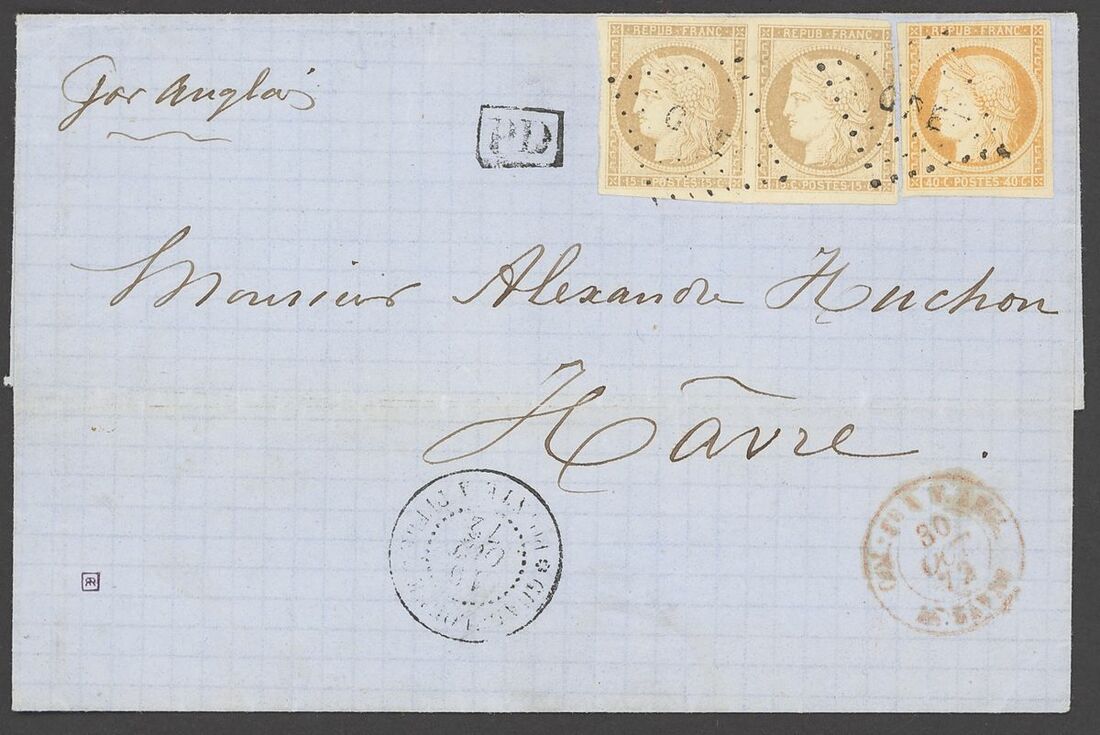 par Anglais
PD
REPUB·FRANC·
15 C·POSTES·15 C
REPUB·FRANC·
15 C·POSTES·15 C
REPUB·FRANC·
40 C·POSTES·40 C·
Monsieur Alexandre Huchon
Hâvre.
POINTE A PITRE
72
30
72